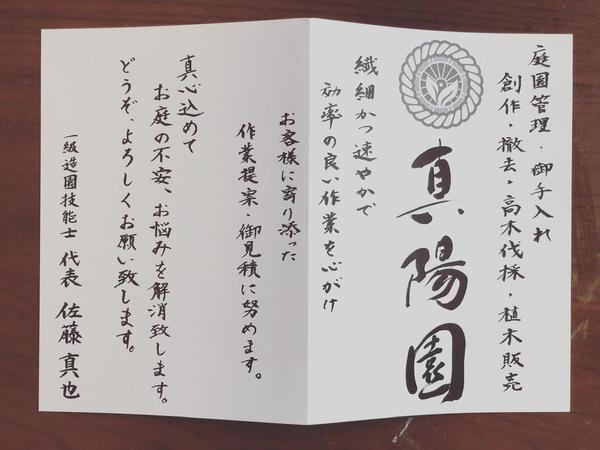 庭園管理・御手入れ
創作・撤去・高木伐採・植木販売
真陽園
繊細かつ速やかで
効率の良い作業を心がけ
お客様に寄り添った
作業提案・御見積に努めます。
真心込めて
お庭の不安、お悩みを解消致します。
どうぞ、よろしくお願い致します。
一級造園技能士 代表 佐藤真也